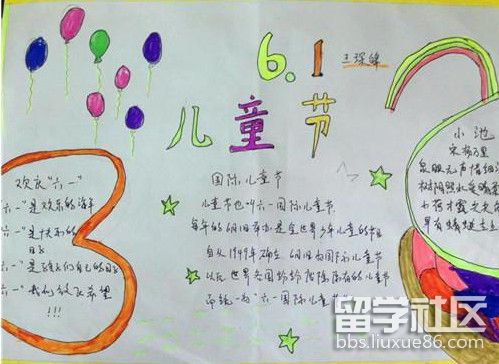 6.1
王琛峰
儿童节
欢庆"六一"
六一"是欢乐的海洋
六一"是快乐的
六一"是孩子们自己的日子
六一"我们放飞希望
!!!
国际儿童节
儿童节也叫六一国际儿童节
每年的6月1日举办是全世界少年儿童的节日
自从1949年确立6月1日为国际儿童节
以后世界各国纷纷废除原有的儿童节
而统一为"六一国际儿童节"
小池
宋 杨万里
泉眼无声惜细
树阴照水爱晴柔
小荷才露尖尖
早有蜻蜓立上
留学社区
bbs.liuxue86.com